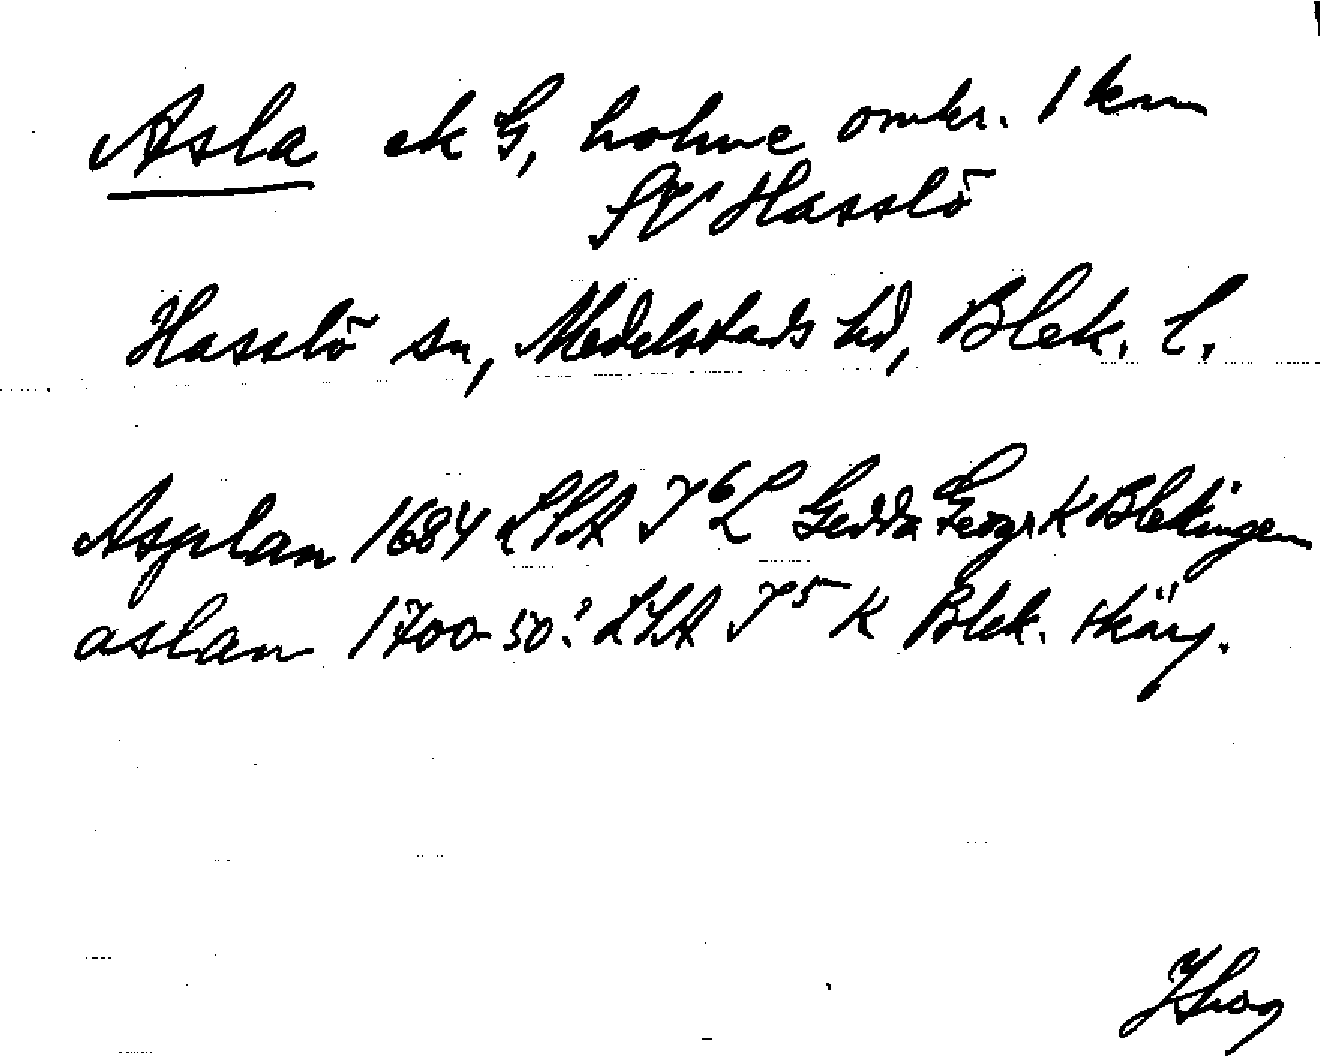 Asla ek G, holme omkr. 1 km
SV Hasslö
Hasslö sn, Medelstads hd, Blek. l.
Asplan 1684 LSA J⁶L Gedda Geogr K Blekingen
aslan 1700-50? LSA J⁵ K Blek. skärg.